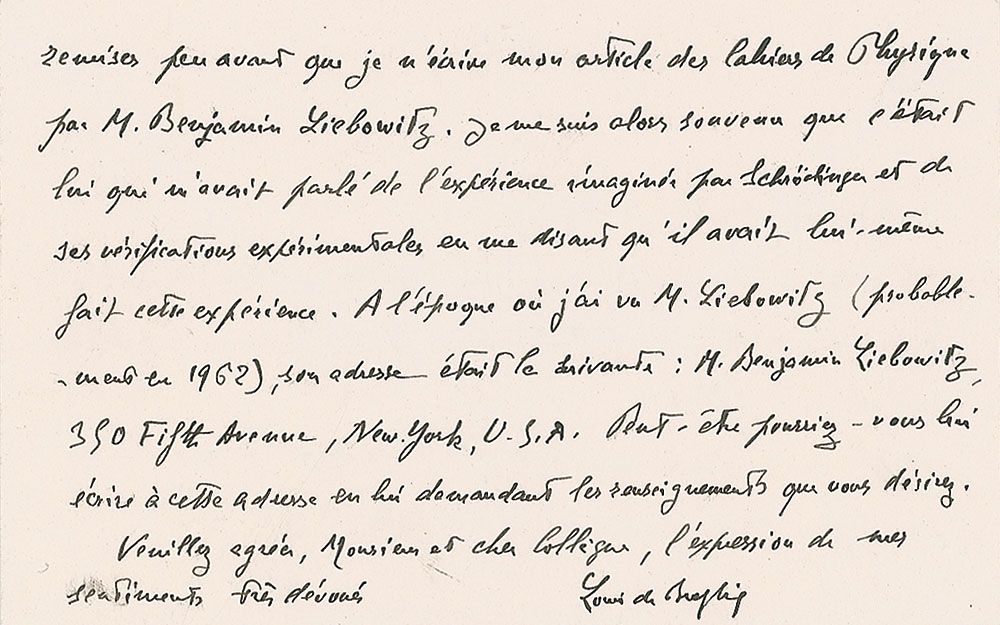 remises peu avant que je n'écrive mon article des Cahiers de Physique
par M. Benjamin Liebowitz. Je me suis alors souvenu que c'était
lui qui m'avait parlé de l'expérience imaginée par Schrödinger et de
ses vérifications expérimentales en me disant qu'il avait lui-même
fait cette expérience. A l'époque où j'ai vu M. Liebowitz (probable-
-ment en 1962), son adresse était la suivante : M. Benjamin Liebowitz,
350 Fifth Avenue, New.York, U.S.A. Peut-être pourriez-vous lui
écrire à cette adresse en lui demandant les renseignements que vous désirez.
Veuillez agréer, Monsieur et cher Collègue, l'expression de mes
sentiments très dévoués
Louis de Broglie